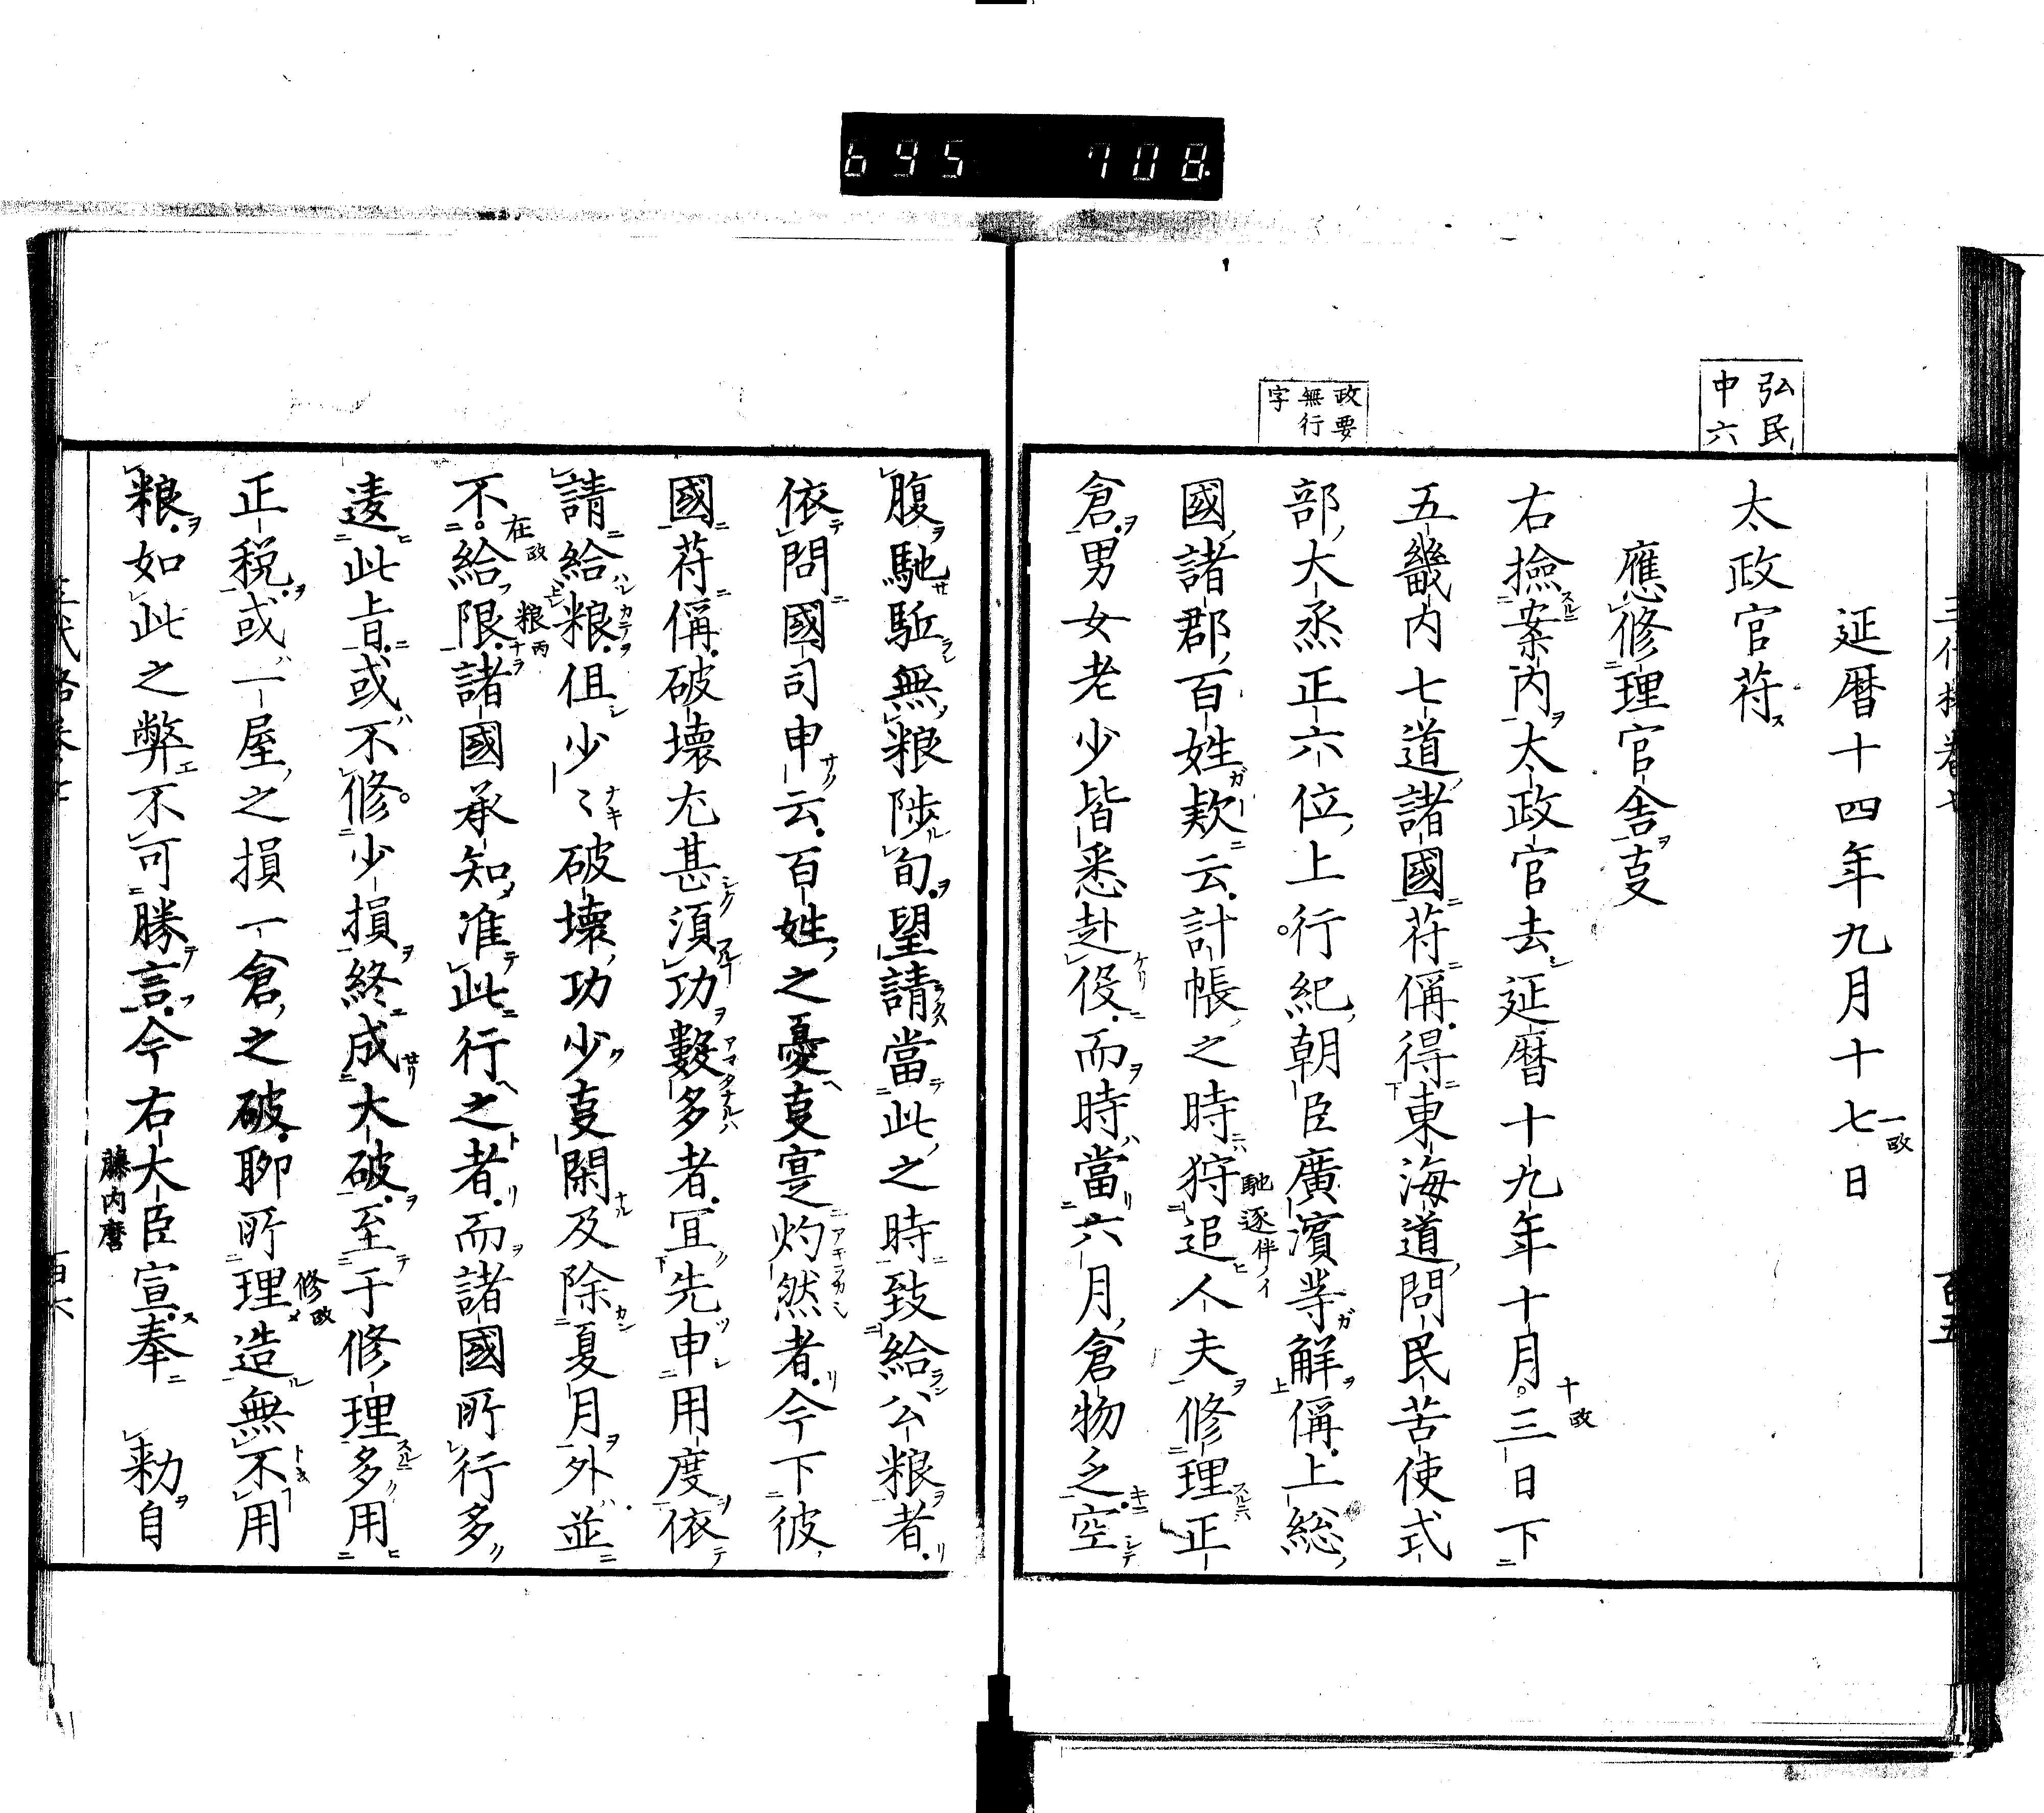 695 708
弘民
中六
政要
無行
字
延暦十四年九月十七日
太政官苻
應修理官舎叓
右撿案内太政官去延暦十九年十月三日下
五畿内七道諸國苻偁得東海道問民苦使式
部大丞正六位上行紀朝臣廣濱等解偁上総
國諸郡百姓款云計帳之時狩追人夫修理正
倉男女老少皆悉赴役而時當六月倉物乏空
腹馳駈無粮陟旬望請當此之時致給公粮者
依問國司申云百姓之憂叓寔灼然者今下彼
國苻偁破壊尤甚須功數多者冝先申用度依
請給粮但少〻破壊功少叓閑及除夏月外並
不給限諸國承知准此行之者而諸國所行多
違此旨或不修少損終成大破至于修理多用
正税或一屋之損一倉之破聊所理造無不用
粮如此之弊不可勝言今右大臣宣奉　勅自
藤内麿